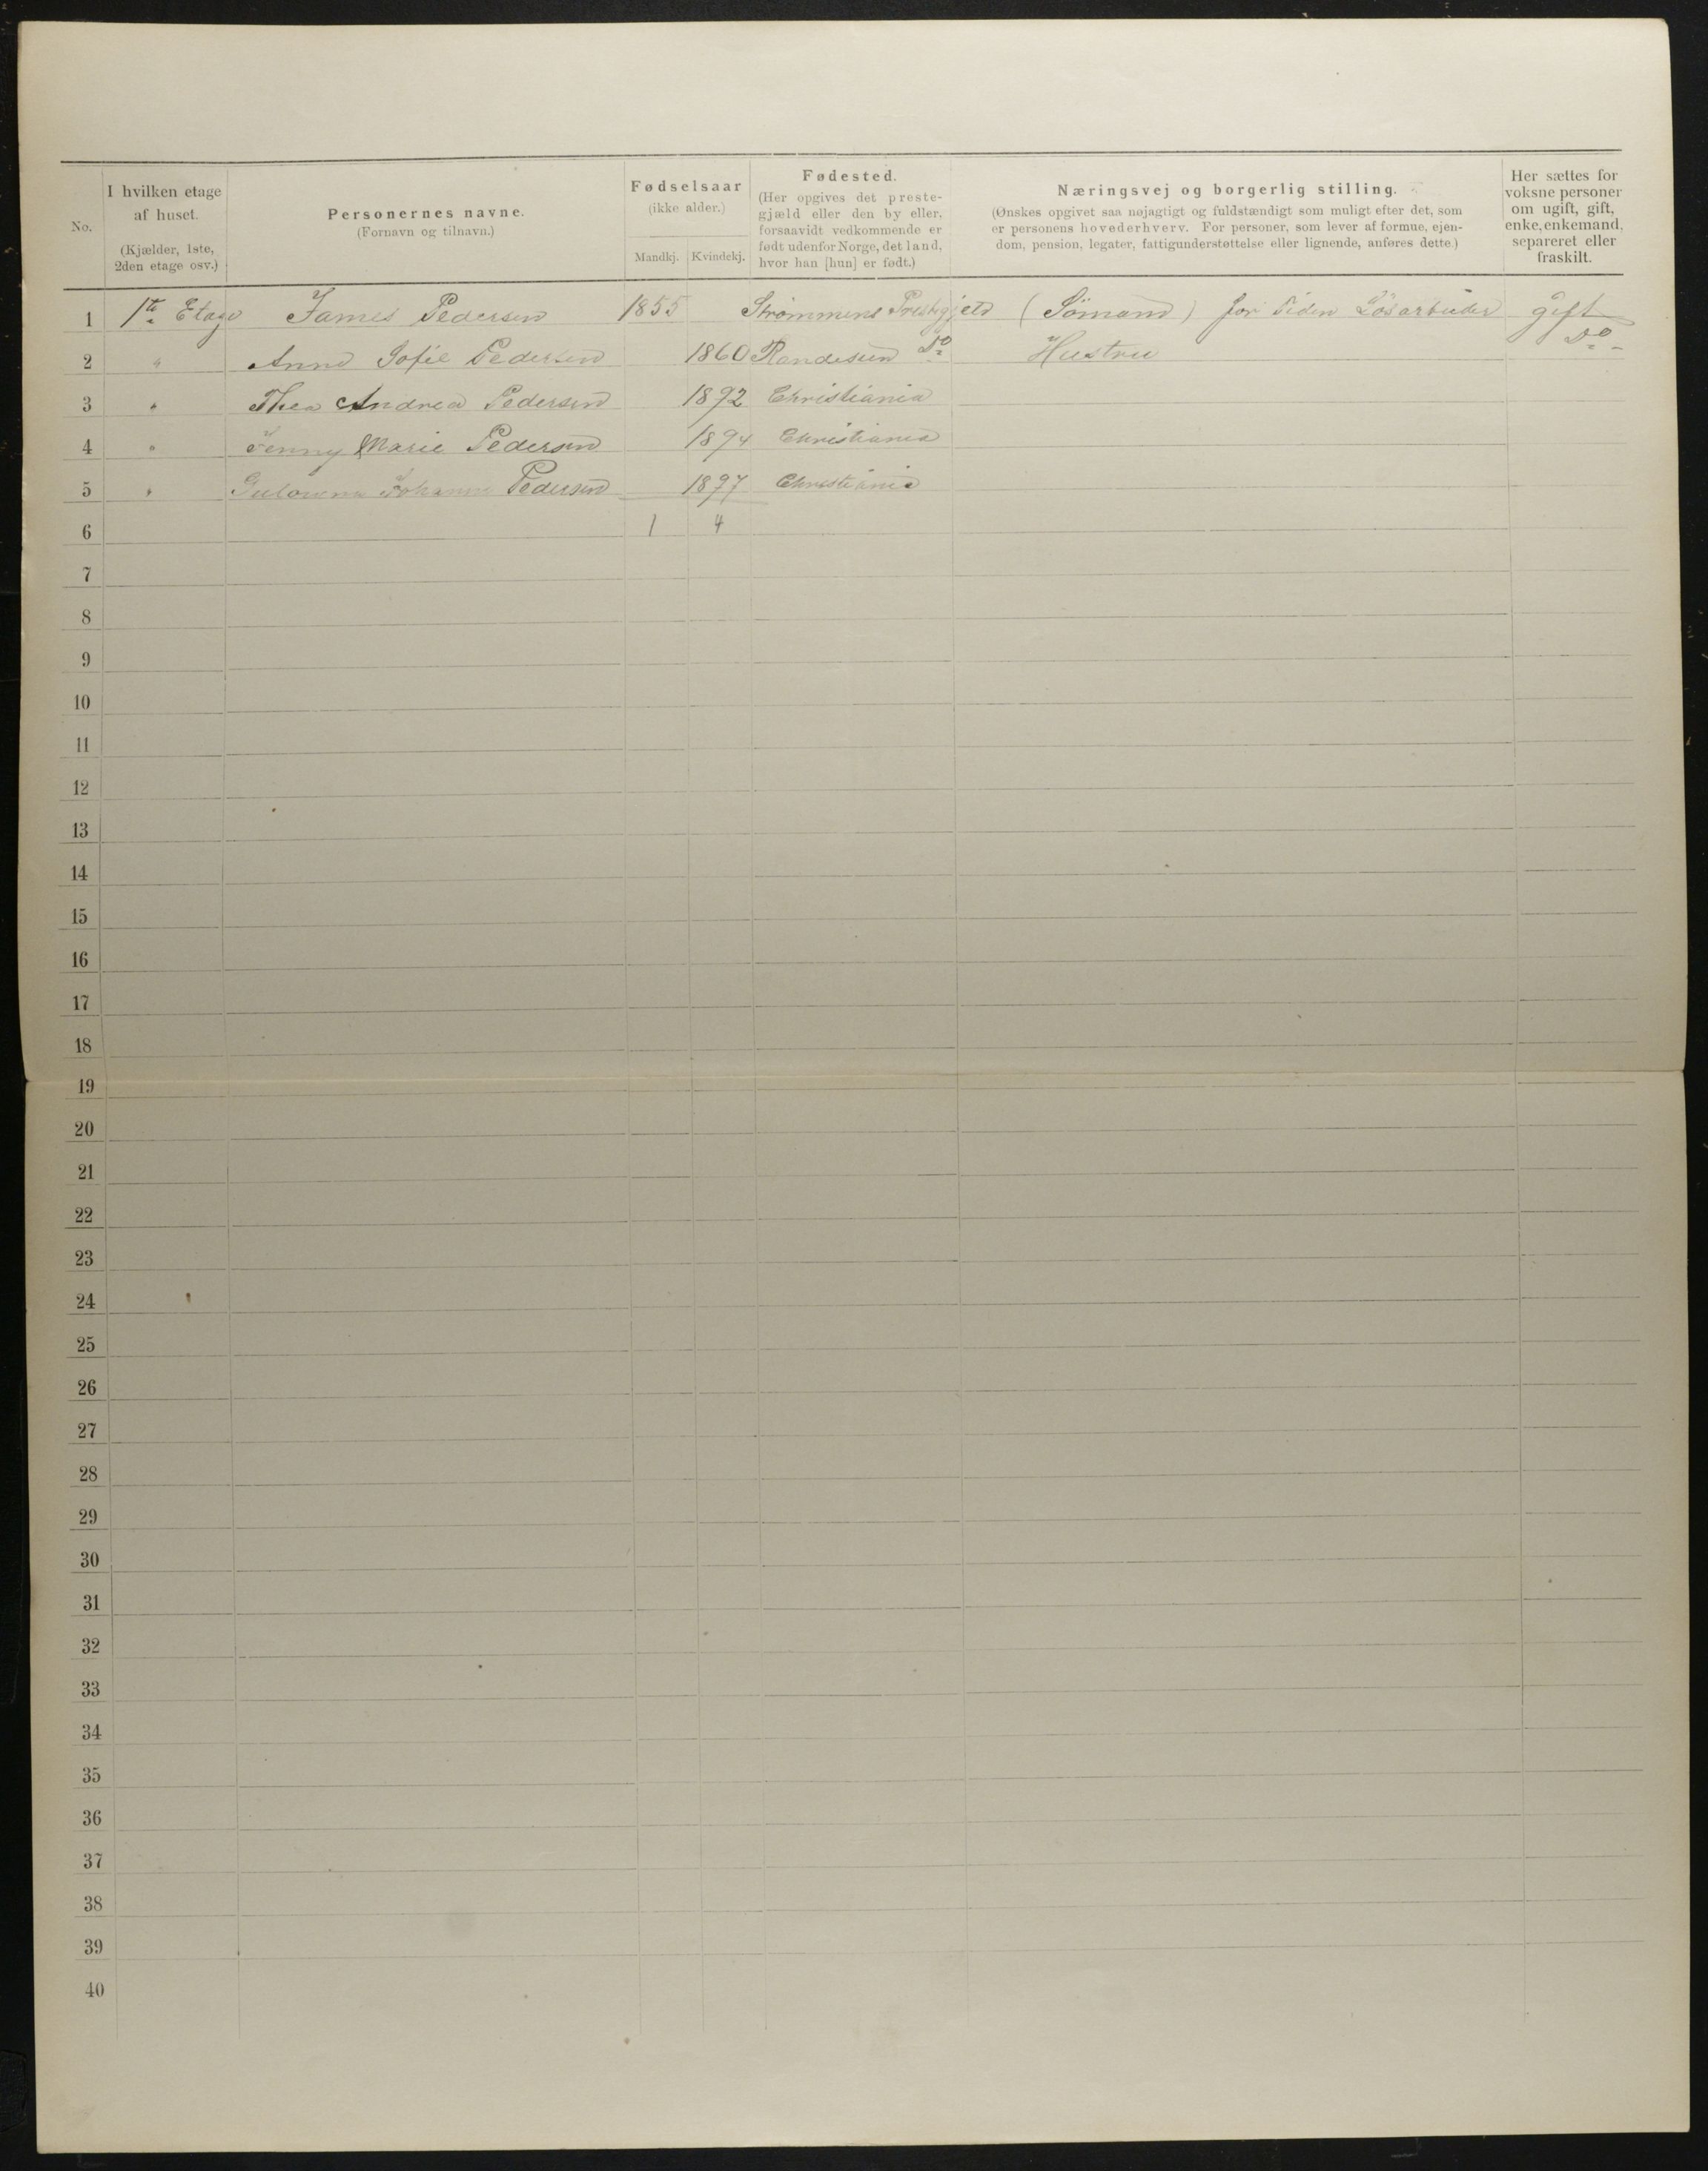 No.
I hvilken etage
af huset.
(Kjælder, 1ste,
2den etage osv.)
Personernes navne.
(Fornavn og tilnavn.)
Fødselsaar
(ikke alder.)
Mandkj. Kvindekj.
Fødested.
(Her opgives det preste-
gjæld eller den by eller,
forsaavidt vedkommende er
født udenfor Norge, det land,
hvor han [hun] er født.)
Næringsvej og borgerlig stilling.
(Ønskes opgivet saa nøjagtigt og fuldstændigt som muligt efter det, som
er personens hovederhverv. For personer, som lever af formue, ejen-
dom, pension, legater, fattigunderstøttelse eller lignende, anføres dette.)
Her sættes for
voksne personer
om ugift, gift,
enke, enkemand,
separeret eller
fraskilt.
1 1te Etage James Pedersen 1855 Strømmens Prestegjeld (Sömand) for Tiden Lösarbeider gift
2 " Anna Sofie Pedersen 1860 Randesund Do Hustru Do
3 " Thea Andrea Pedersen 1892 Christiania
4 " Jenny Marie Pedersen 1894 Christiania
5 " Johanne Pedersen 1897 Christiania
6 1 4
7
8
9
10
11
12
13
14
15
16
17
18
19
20
21
22
23
24
25
26
27
28
29
30
31
32
33
34
35
36
37
38
39
40